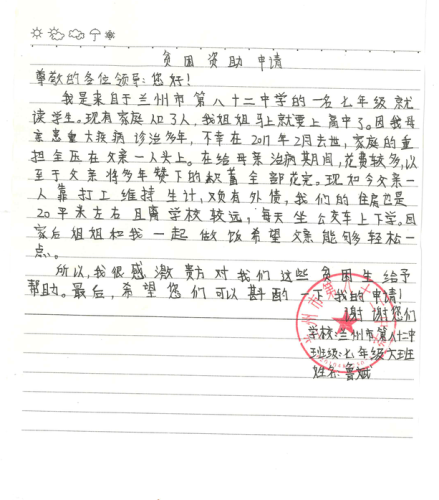 贫困资助申请
尊敬的各位领导:您好!
我是来自于兰州市第八十二中学的一名七年级就
读学生。现有家庭人口3人,我姐姐马上就要上高中了。因我母
亲患重大疾病诊治多年,不幸在2017年2月去世,家庭的重
担全压在父亲一人头上。在给母亲治病期间,花费较多,以
至于父亲将多年攒下的积蓄全部花完。现如今父亲一
人靠打工维持生计,还有外债,我们的住房也是
20平米左右且离学校较远,每天坐公交车上下学。回
家后姐姐和我一起做饭希望父亲能够轻松一
点。
所以,我很感激贵方对我们这些贫困生给予
帮助。最后,希望您们可以斟酌一下我的申请!
谢谢您们
学校:兰州市第八十二中
班级:七年级六班
姓名:鲁斌